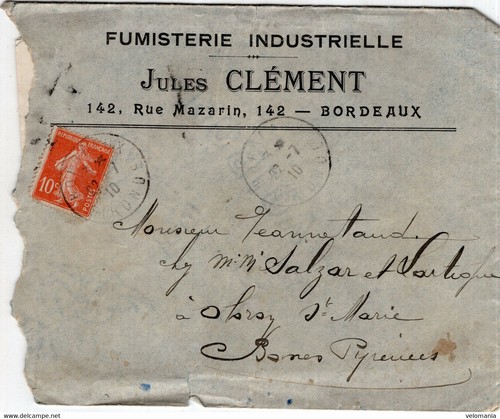 FUMISTERIE INDUSTRIELLE
JULES CLÉMENT
142, Rue Mazarin, 142 — BORDEAUX
10c
22-7
10
Monsieur Jeannetaud
chez M. M. Salzar et Lartigue
à Ste Marie
Basses Pyrénées
www.delcampe.net
velomania